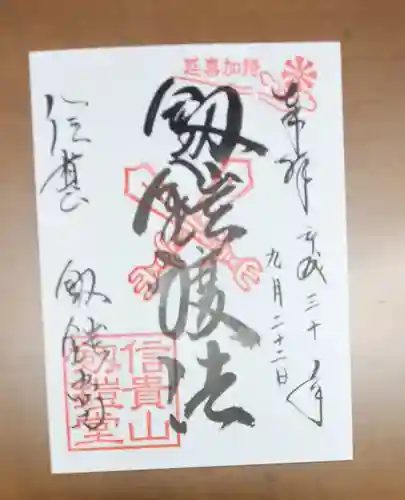 延喜加持
奉拝
平成三十年
九月二十二日
剱鎧護法
信貴山
剱鎧堂
信貴山
剱鎧堂